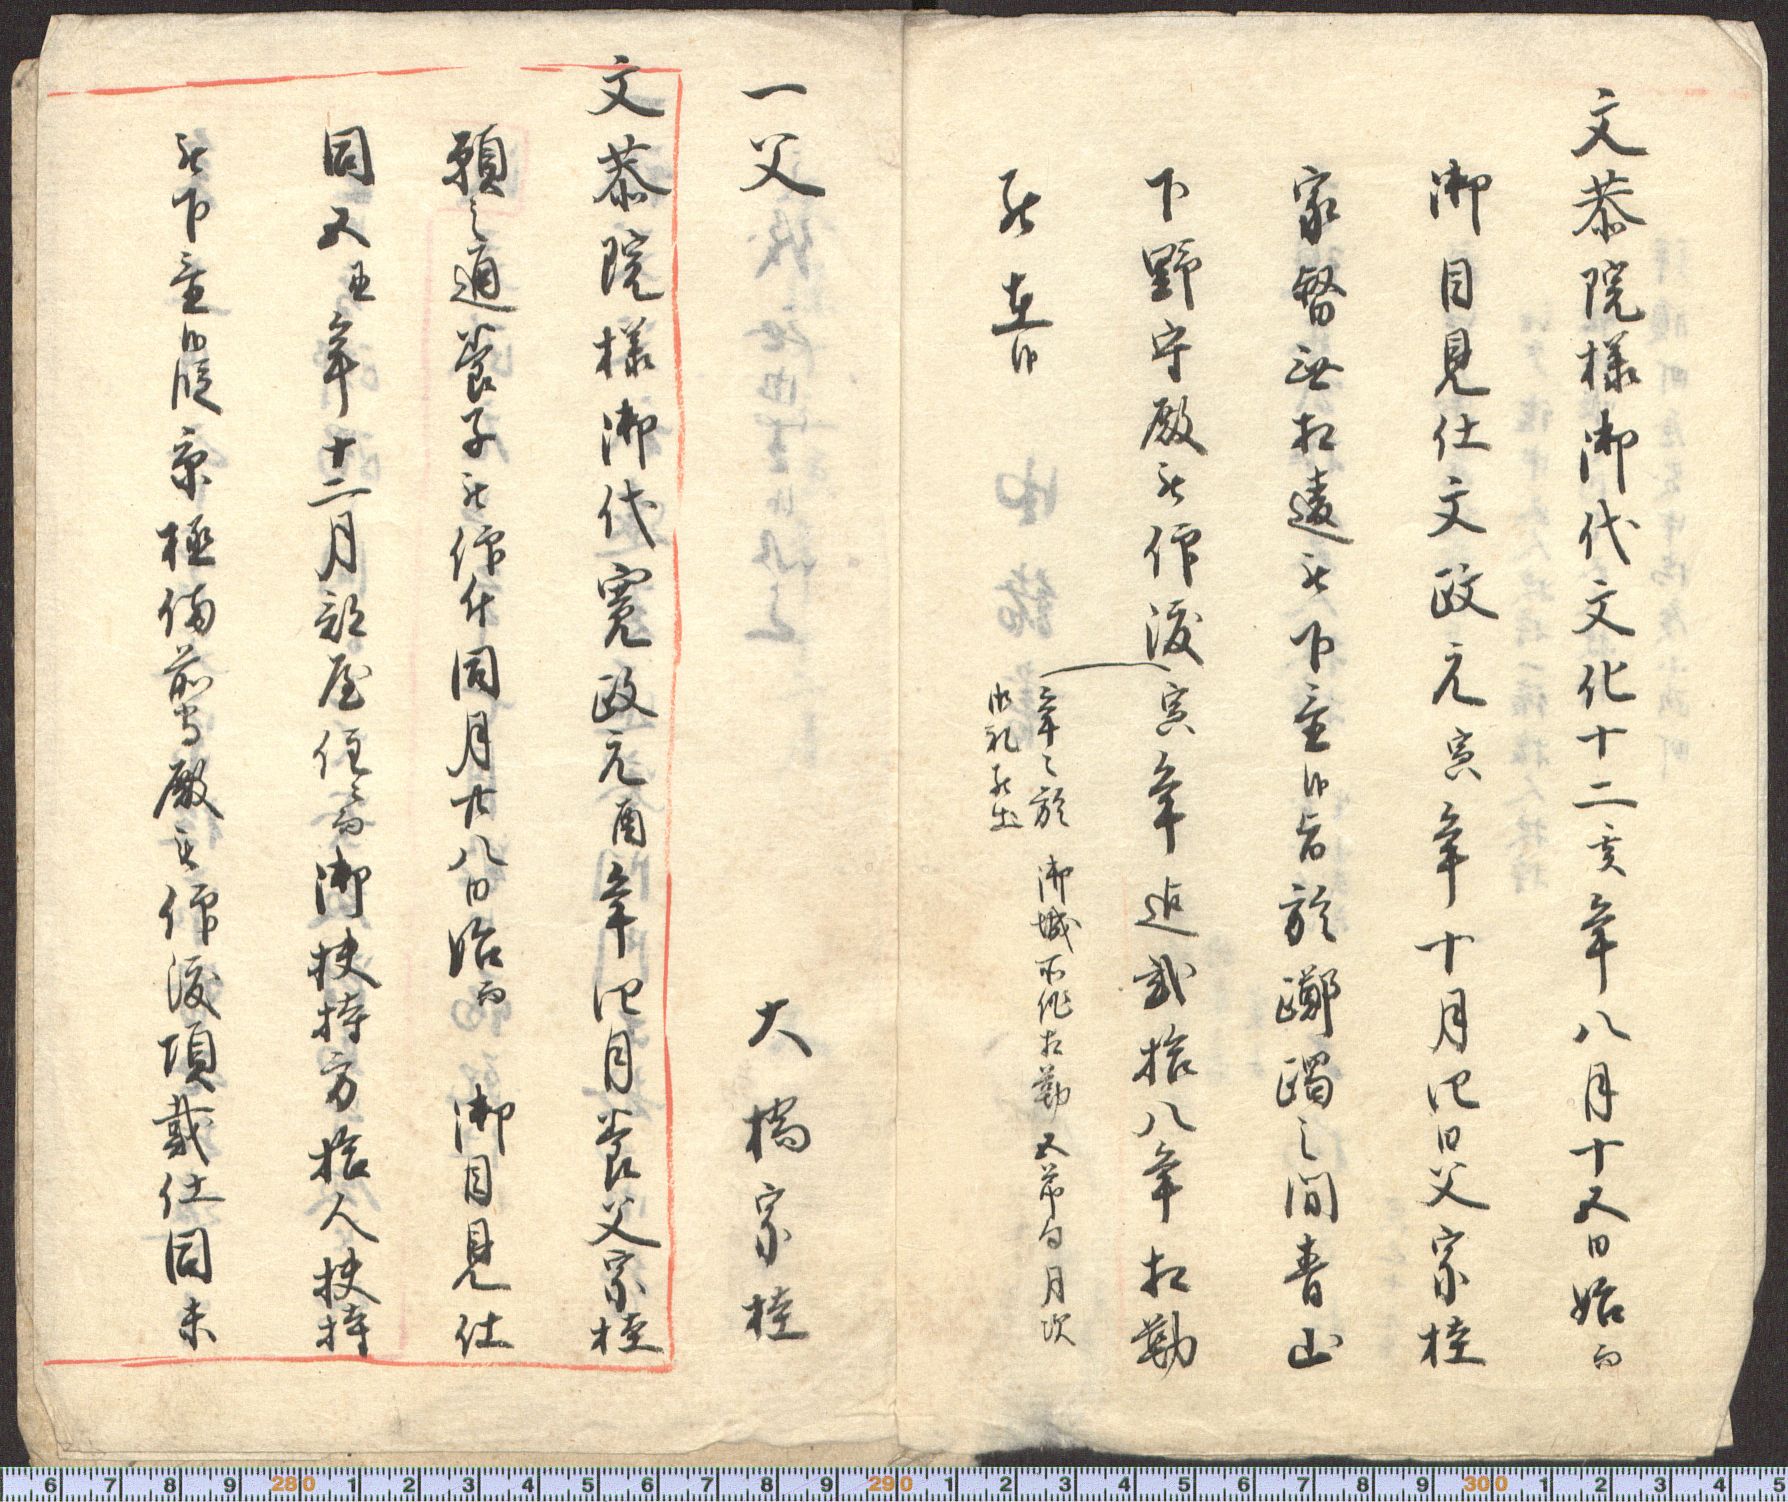 文恭院様御代文化十二亥年八月十五日始而
御目見仕文政元寅年十月四日父宗桂
家督無相違被下置候旨於躑躅之間青山
下野守殿被仰渡寅年迄弐拾八年相勤
年々於 御城不怍相勤五節句月次
御礼罷出
罷在候
一父 大橋宗桂
文恭院様御代寛政元酉年四月養父宗桂
願之通養子被仰付同月廿八日始而 御目見仕
同五丑年十二月部屋住ニ而御扶持方拾人扶持
被下置候段京極備前守殿被仰渡頂戴仕同未